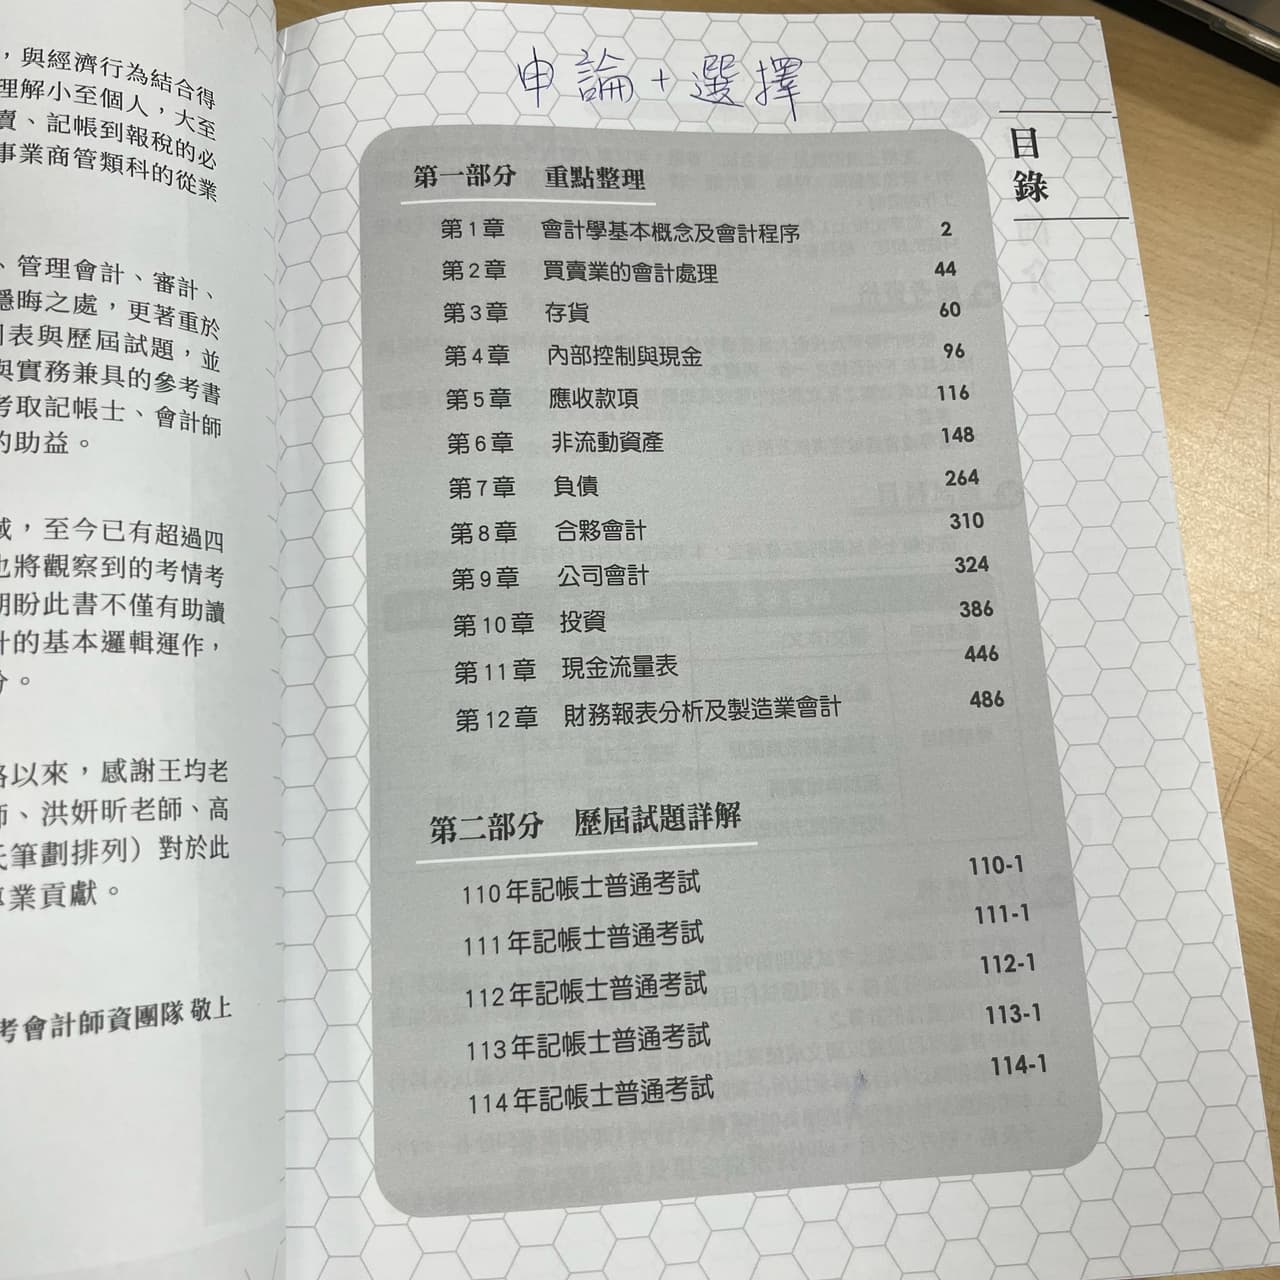 ，與經濟行為結合得
理解小至個人，大至
賣、記帳到報稅的必
事業商管類科的從業
、管理會計、審計、
隱晦之處，更著重於
列表與歷屆試題，並
與實務兼具的參考書
考取記帳士、會計師
的助益。
域，至今已有超過四
也將觀察到的考情考
期盼此書不僅有助讀
計的基本邏輯運作，
分。
以來，感謝王均老
師、洪妍昕老師、高
氏筆劃排列）對於此
專業貢獻。
考會計師資團隊 敬上
申論+選擇
目錄
第一部分 重點整理
第1章 會計學基本概念及會計程序 2
第2章 買賣業的會計處理 44
第3章 存貨 60
第4章 內部控制與現金 96
第5章 應收款項 116
第6章 非流動資產 148
第7章 負債 264
第8章 合夥會計 310
第9章 公司會計 324
第10章 投資 386
第11章 現金流量表 446
第12章 財務報表分析及製造業會計 486
第二部分 歷屆試題詳解
110年記帳士普通考試 110-1
111年記帳士普通考試 111-1
112年記帳士普通考試 112-1
113年記帳士普通考試 113-1
114年記帳士普通考試 114-1